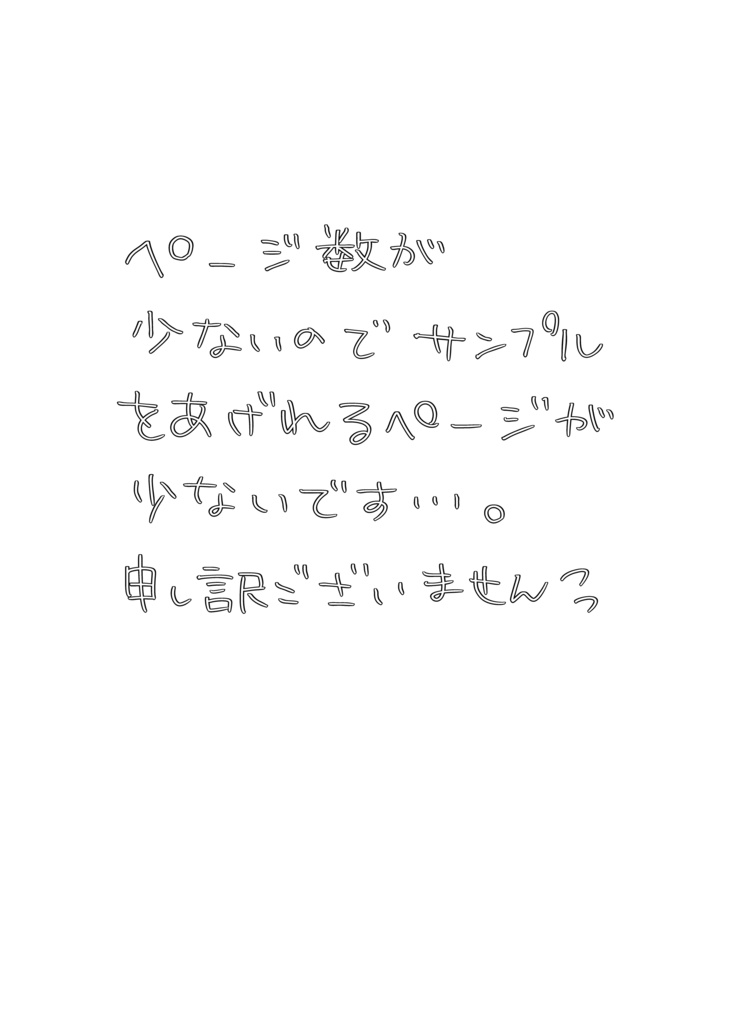 ページ数が
少ないのでサンプル
をあげれるページが
少ないです…。
申し訳ございませんっっ